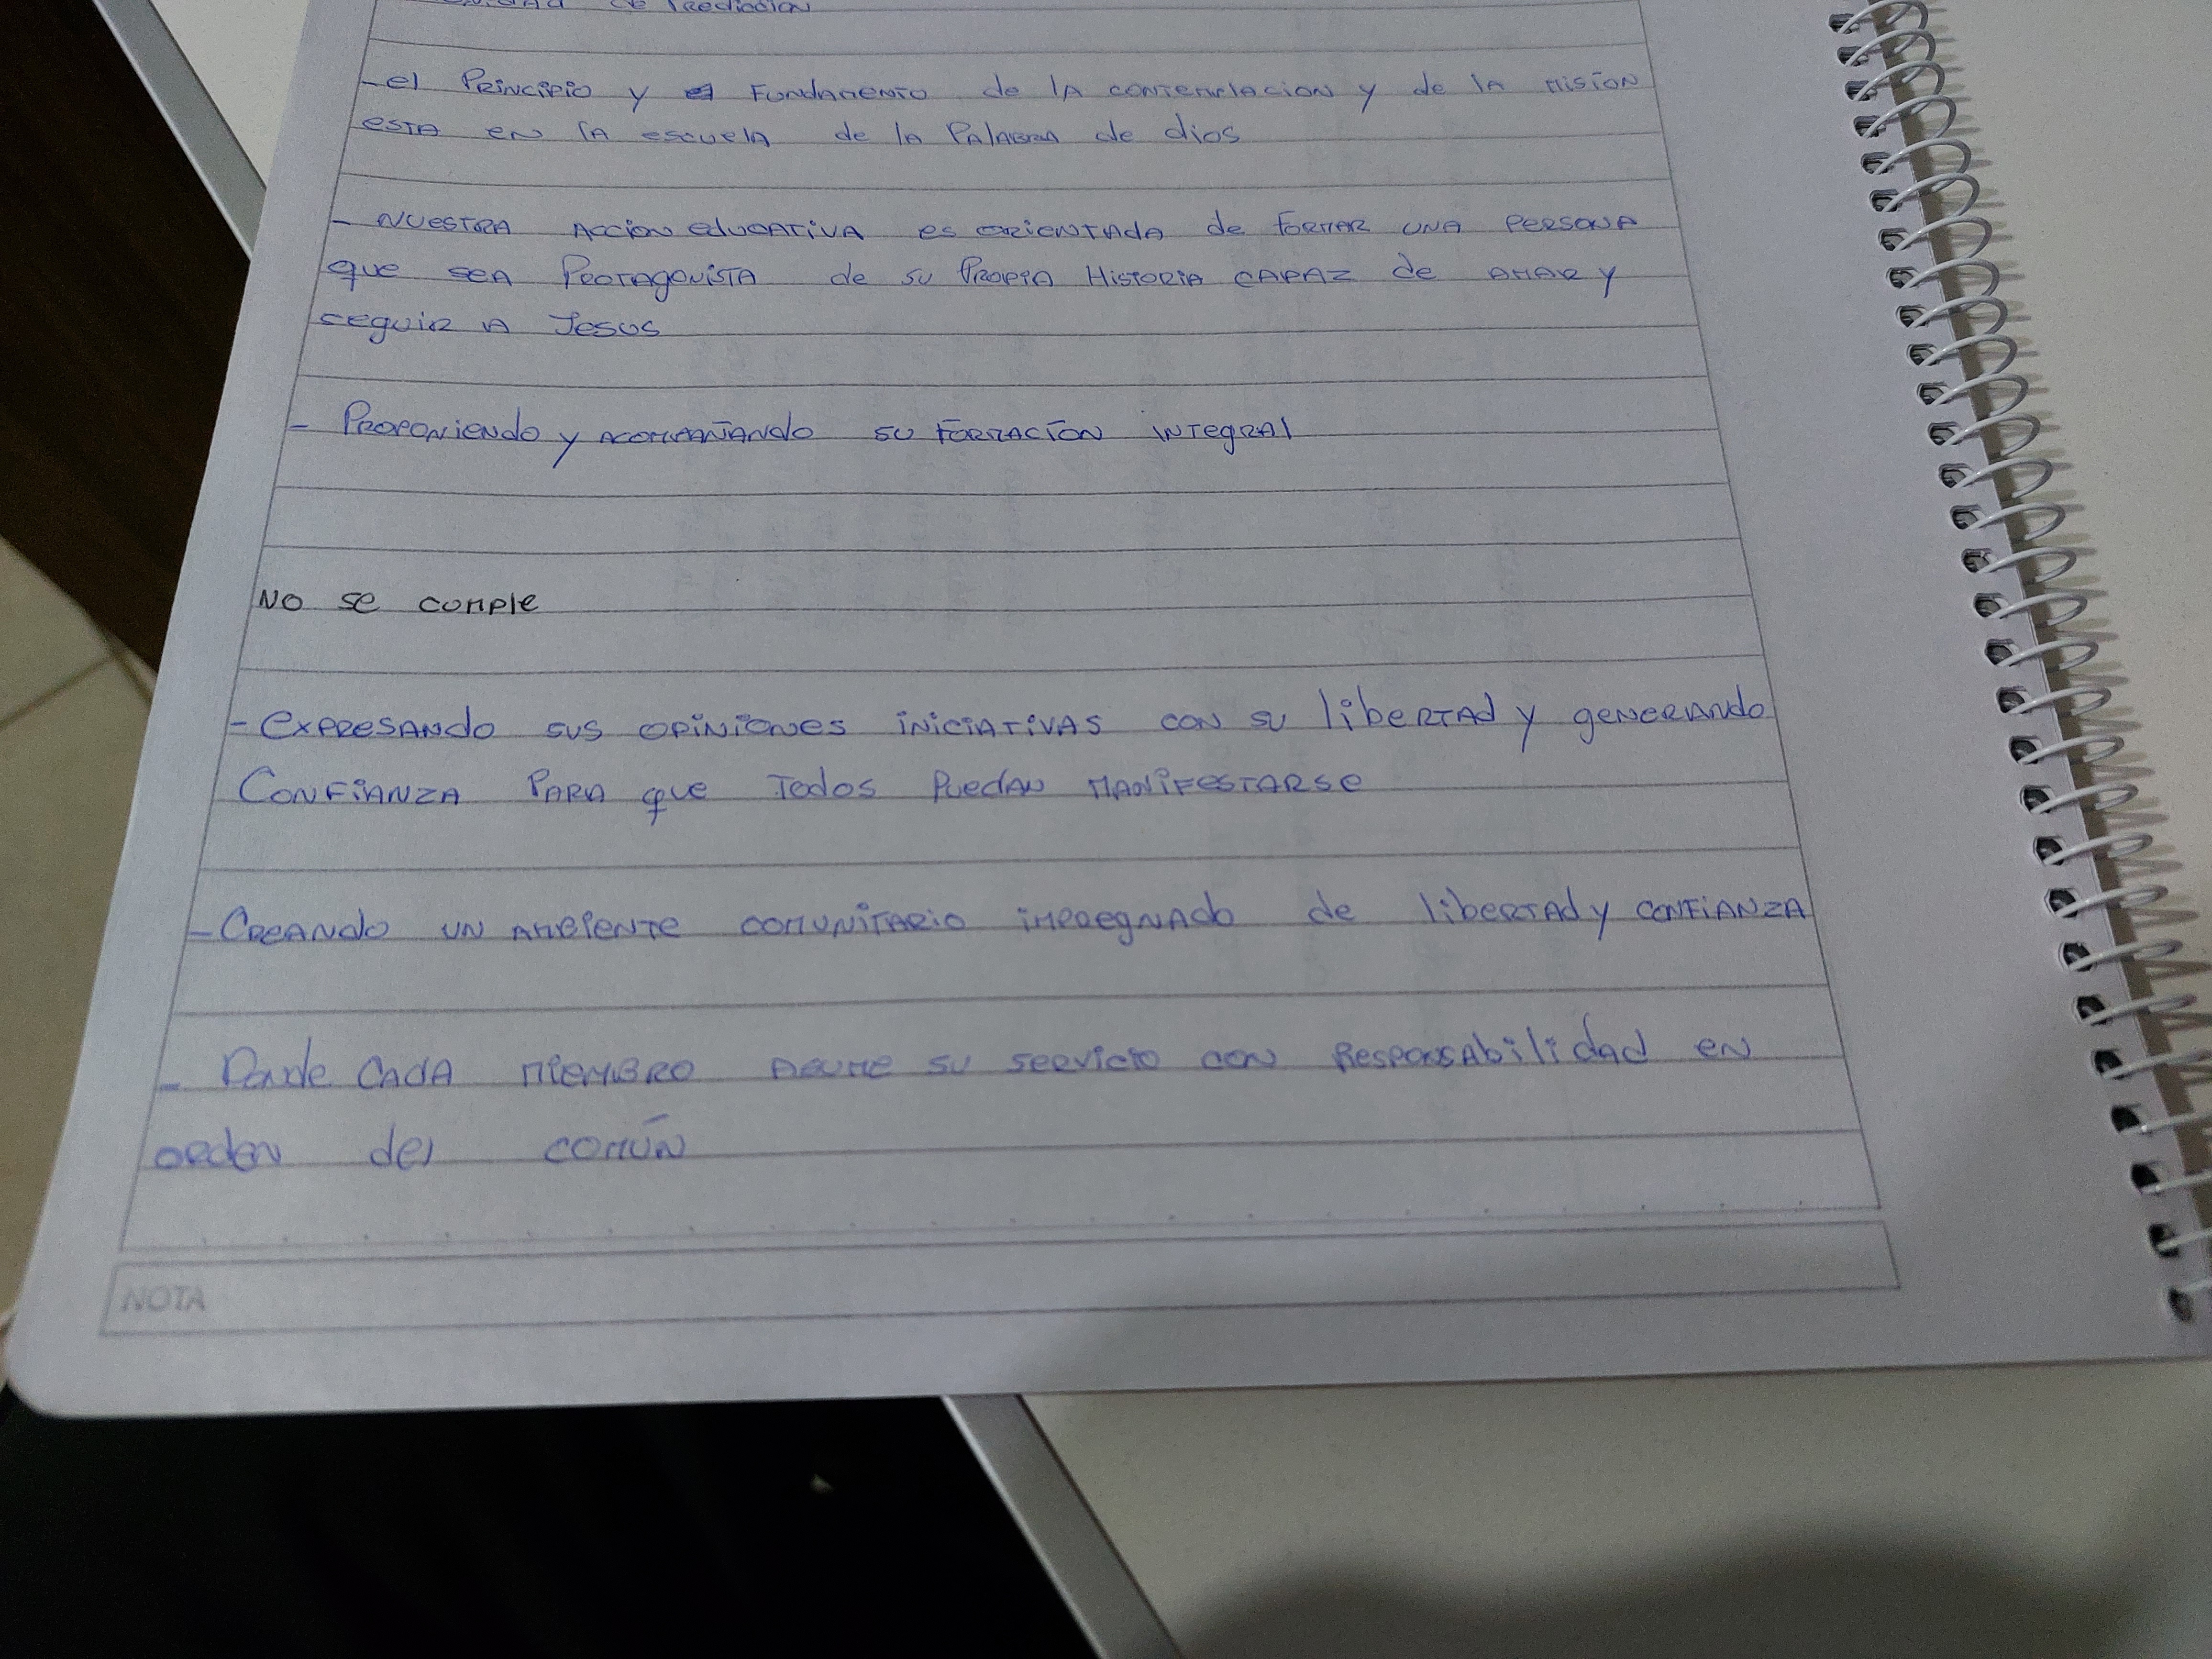 de Predicacion
- el Principio y el Fundamento de la contemplacion y de la mision
esta en la escuela de la Palabra de dios
- Nuestra Accion educativa es orientada de formar una persona
que sea Protagonista de su Propia Historia capaz de amar y
seguir a Jesus
- Proponiendo y acompañando su formacion integral
No se cumple
- expresando sus opiniones iniciativas con su libertad y generando
Confianza Para que Todos Puedan manifestarse
- Creando un ambiente comunitario impregnado de libertad y confianza
- Donde Cada miembro asume su servicio con Responsabilidad en
orden del común
NOTA